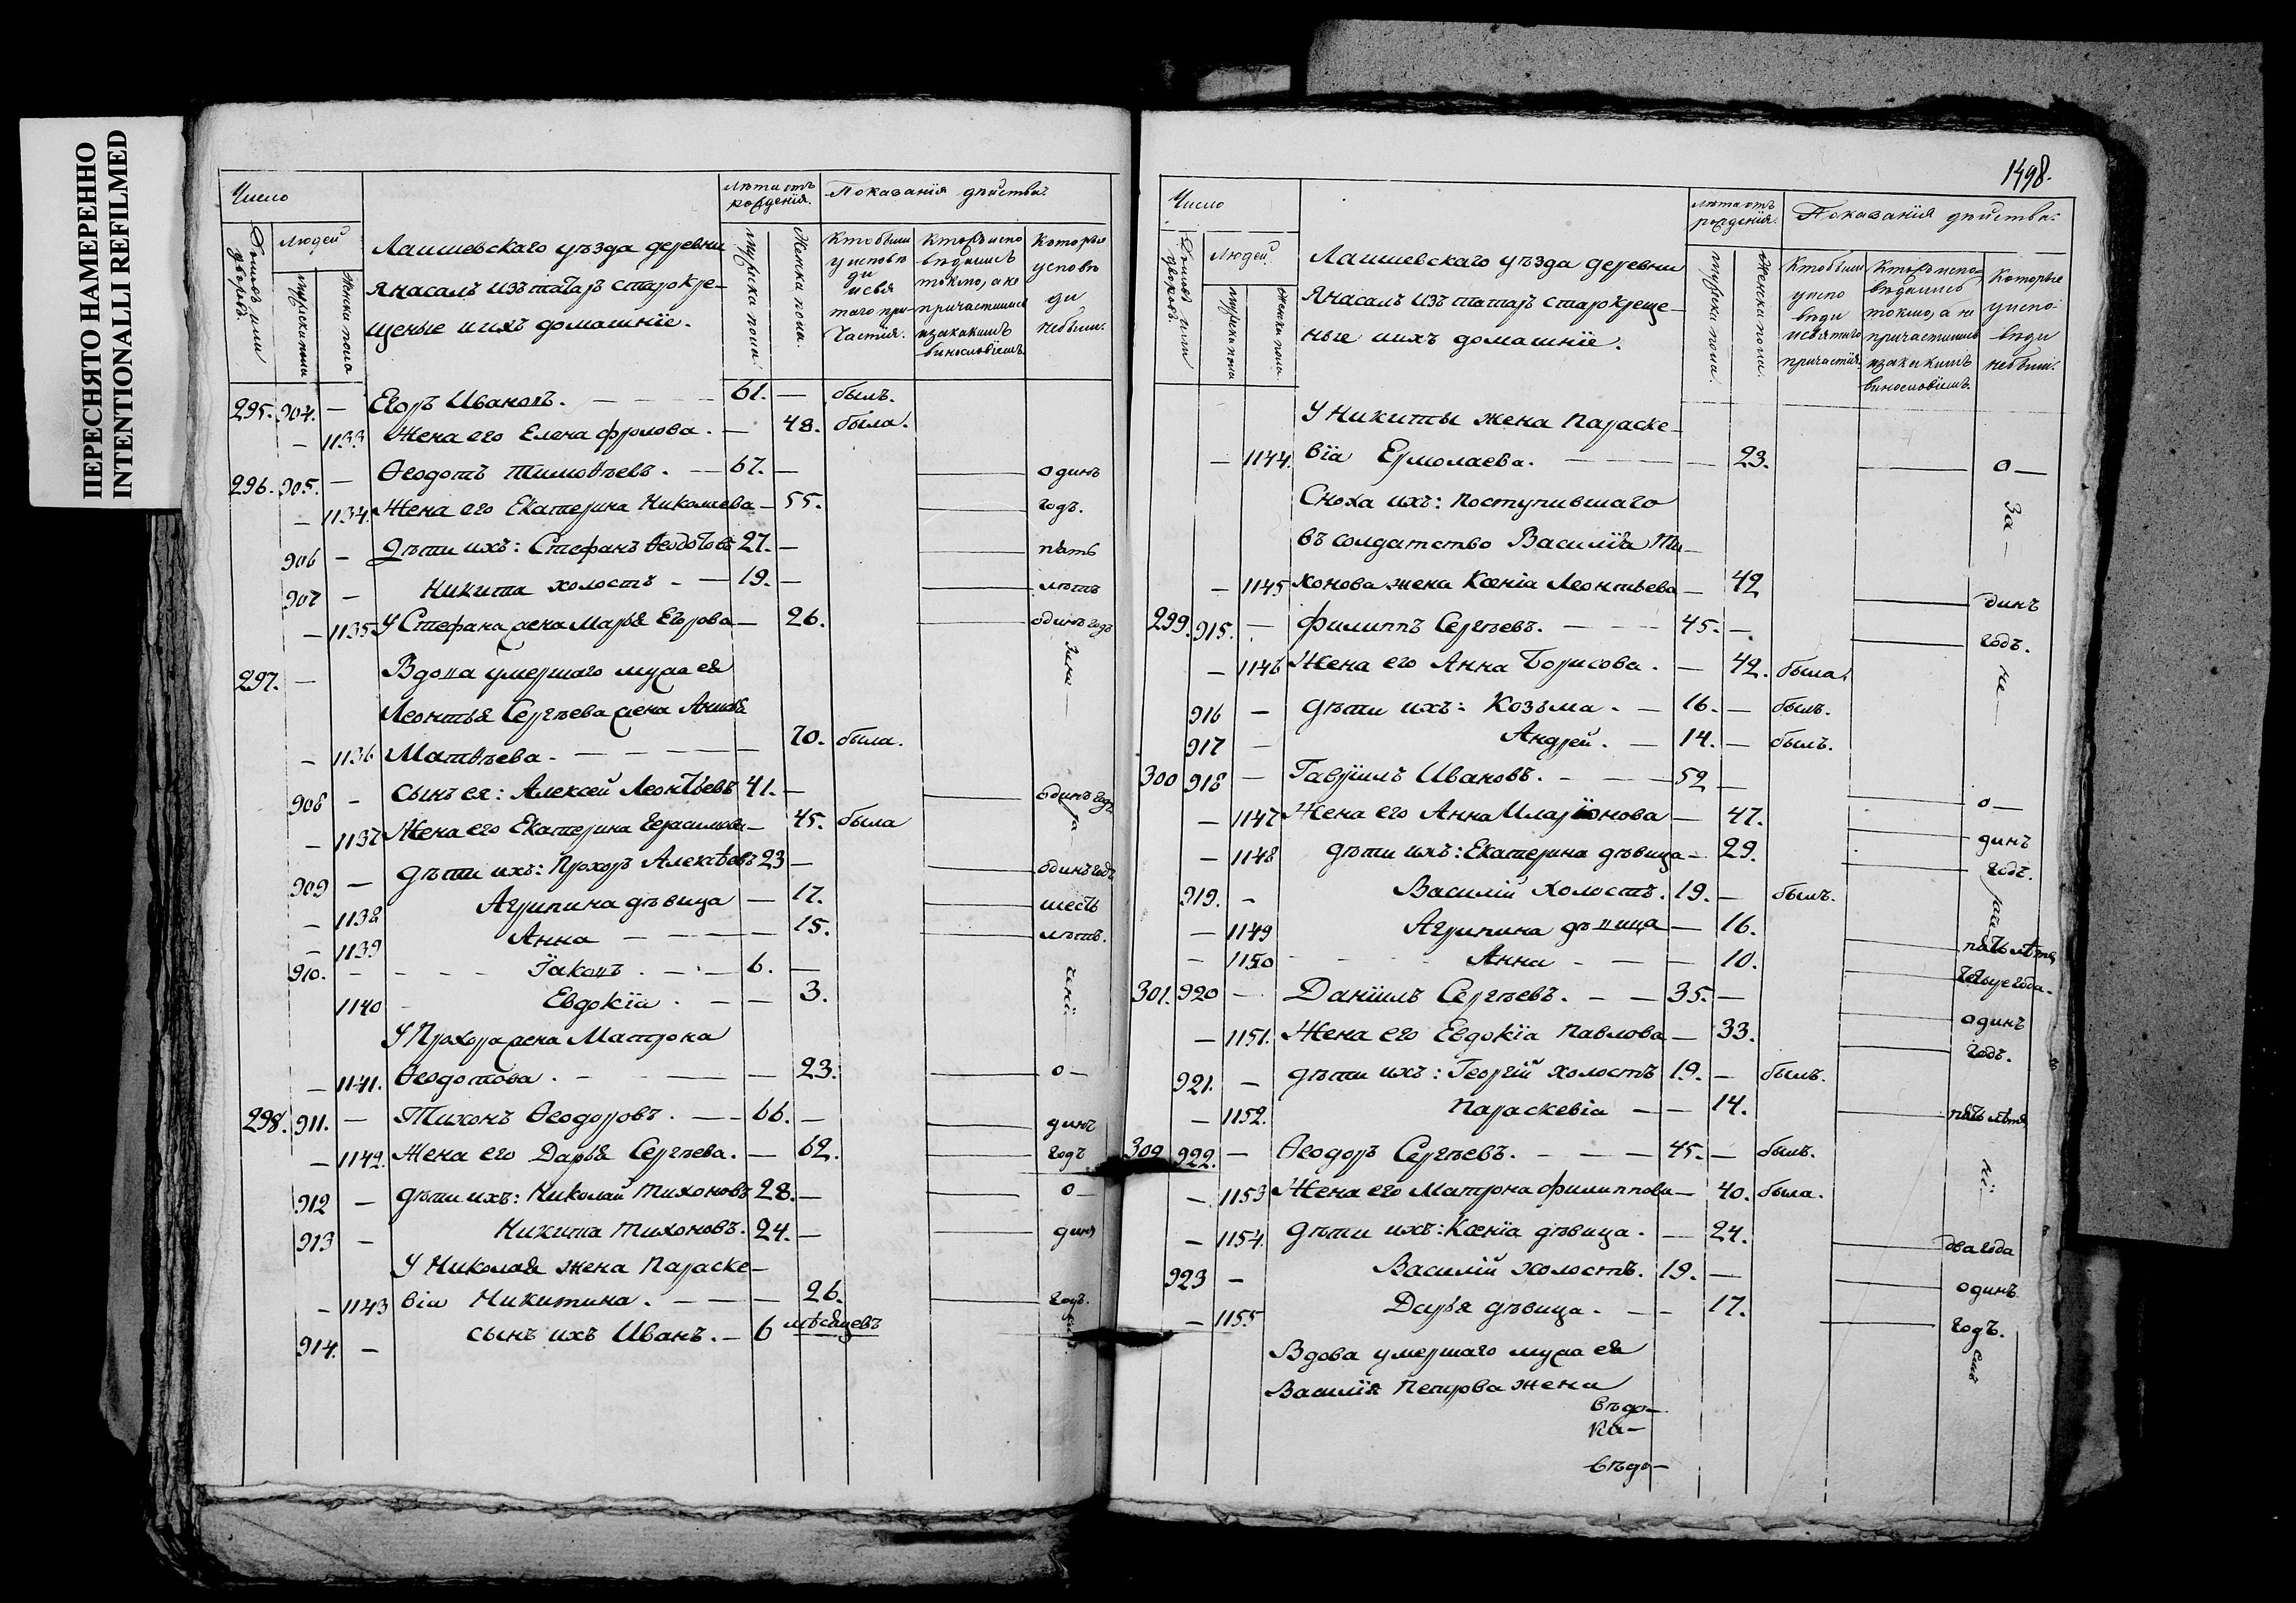 ПЕРЕСНЯТО НАМЕРЕННО
INTENTIONALLI REFILMED
Число
лѣта отъ рожденія.
Показанія дѣйства:
Домовъ или дворовъ.
Людей
мужска пола
женска пола
Лаишевскаго уѣзда деревни
Янасалъ изъ татаръ старокре-
щеные и ихъ домашніе.
мужска пола.
Женска пола.
Кто были у исповѣди и святаго причастія.
Которые исповѣдались токмо, а не причастились и за какимъ винословіемъ.
Которые у исповѣди небыли.
295. 904. — Егоръ Ивановъ. — 61. — былъ.
— 1133 Жена его Елена Фролова. — 48. была.
296. 905. — Ѳеодотъ Тимоѳѣевъ. — 67. — одинъ
— 1134. Жена его Екатерина Николаева — 55. годъ.
906 — Дѣти ихъ: Стефанъ Ѳеодотовъ 27. — пять
907 — Никита холостъ — 19. — лѣтъ
— 1135 У Стефана жена Марья Егорова — 26. одинъ годъ
297. — Вдова умершаго мужа ея
Леонтья Сергѣева жена Анна
— 1136 Матвѣева. — 70. была.
908 — Сынъ ея: Алексей Леонтьевъ 41. — одинъ годъ
— 1137 Жена его Екатерина Герасимова — 45. была
909 — Дѣти ихъ: Прохоръ Алексѣевъ 23 — одинъ годъ
— 1138 Агрипина дѣвица — 17. шесть
— 1139 Анна — 15. лѣтъ.
910. — Іаковъ. — 6. —
1140 Евдокія. — 3.
У Прохора жена Матрона
— 1141. Ѳеодотова. — 23. о—
298. 911. — Тихонъ Ѳеодоровъ. — 66. — динъ
— 1142. Жена его Дарья Сергѣева. — 62. годъ
912 — Дѣти ихъ: Николай Тихоновъ 28. — о—
913 — Никита Тихоновъ. 24. — динъ
У Николая жена Параске-
— 1143 вія Никитина. — 26. годъ.
914. — сынъ ихъ Иванъ. — 6 мѣсяцевъ
1498.
Число
лѣта отъ рожденія.
Показанія дѣйства:
Домовъ или дворовъ.
Людей
мужска пола
женска пола.
Лаишевскаго уѣзда деревни
Янасалъ изъ татаръ старокреще-
ные и ихъ домашніе.
мужска пола.
Женска пола.
Кто были у исповѣди и святаго причастія.
Которые исповѣдались токмо, а не причастились и за какимъ винословіемъ.
Которые у исповѣди небыли.
У Никиты жена Параске-
— 1144. вія Ермолаева. — 23. о—
Сноха ихъ: поступившаго
За—
въ солдатство Василія Ти-
— 1145 хонова жена Ксенія Леонтьева — 42 динъ
299. 915. — Филиппъ Сергѣевъ. — 45. — годъ.
— 1146 Жена его Анна Борисова. — 42. была.
не
916 — Дѣти ихъ: Козьма. — 16. — былъ.
917 — Андрей. — 14. — былъ.
300 918 — Гавріилъ Ивановъ. — 52 — о—
— 1147 Жена его Анна Иларіонова — 47. динъ
— 1148 Дѣти ихъ: Екатерина дѣвица — 29. годъ.
919. — Василій холостъ. 19. — былъ.
— 1149 Агрипина дѣвица — 16. пять лѣтъ
— 1150 Анна — 10. четыре года.
301. 920 — Даніилъ Сергѣевъ. — 35. — одинъ
— 1151. Жена его Евдокія Павлова — 33. годъ.
921. — Дѣти ихъ: Георгій холостъ 19. — былъ.
— 1152. Параскевіа — 14. пять лѣтъ
302 922. — Ѳеодоръ Сергѣевъ. — 45. — былъ.
— 1153 Жена его Матрона Филиппова — 40. была.
— 1154. Дѣти ихъ: Ксенія дѣвица. — 24. два года
923 — Василій холостъ. 19. — одинъ
— 1155 Дарья дѣвица. — 17. годъ.
Вдова умершаго мужа ея
Василія Петрова жена
Вѣдо-
ка-
Вѣдо-